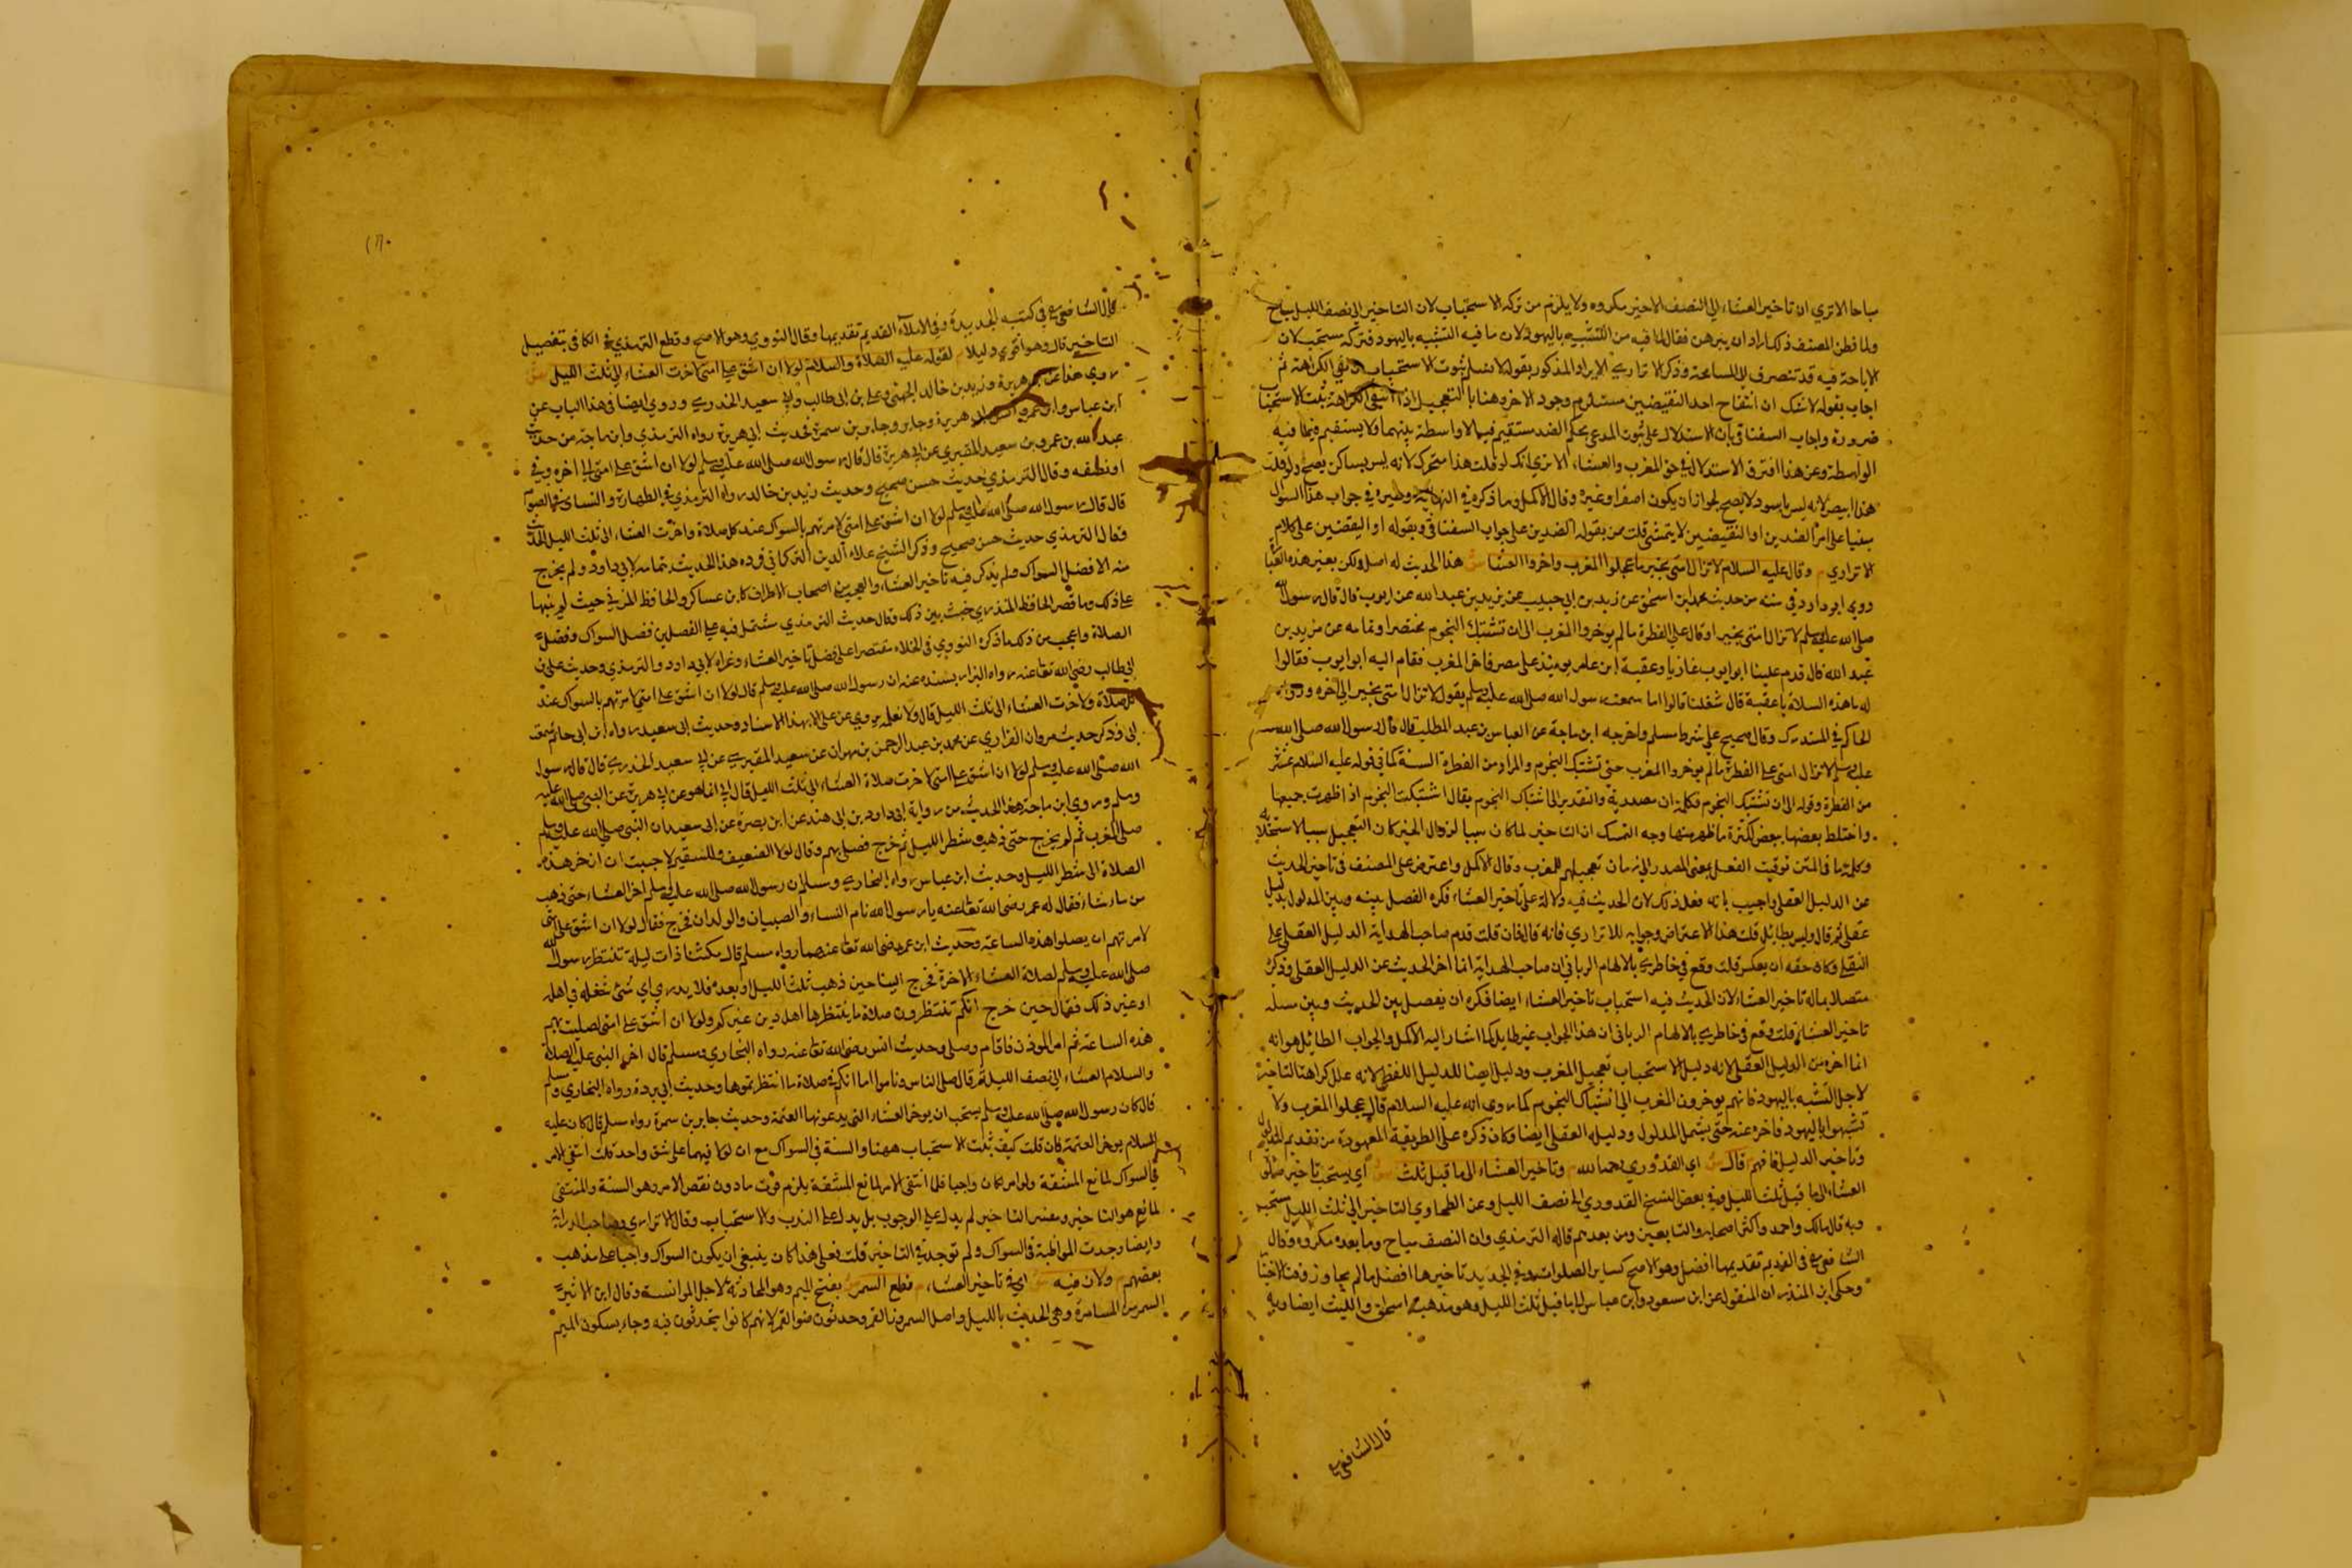 مباحا الا تري ان تاخير العشاء الي النصف الاخير مكروه ولا يلزم من تركه الاستحباب لان التاخير الي نصف الليل مباح
ولما فطن المصنف ذلك اراد ان يبرهن فقال لما فيه من التشبيه باليهود لان ما فيه التشبه باليهود فتركه مستحب لان
الاباحة فيه قد تنصرف الي المسامحة وذكر الاتراري الايراد المذكور بقوله لا نسلم ثبوت الاستحباب في نفي الكراهة ثم
اجاب بقوله لا شك ان انتفاح احد النقيضين مستلزم وجود الاخر وهنا بالتعجيل اذا انتفي الكراهة ثبت الاستحباب
ضرورة واجاب السغناقي بان الاستدلال على ثبوت المدعي بحكم الضد مستقيم فيما لا واسطة بينهما ولا يستقيم فيما فيه
الواسطة وعن هذا افترق الاستدلال في حق المغرب والعشاء الا تري انك لو قلت هذا متحرك لانه ليس بساكن يصح ولو قلت
هذا ابيض لانه ليس باسود لا يصح لجواز ان يكون اصفر او غيره وقال الاكمل وما ذكره في النهاية وغيره في جواب هذا السوال
مبنيا على امر الضدين او النقيضين لا يتمشي قلت من بقوله الضدين على جواب السغناقي وبقوله او النقيضين على كلام
الاتراري م وقال عليه السلام لا تزال امتي بخير ما عجلوا المغرب واخروا العشا ش هذا الحديث له اصل ولكن بغير هذه العبارة
روي ابو داود في سننه من حديث محمد بن اسحق عن زيد بن ابي حبيب عن يزيد بن عبد الله عن ايوب قال قال رسول الله
صلي الله عليه وسلم لا تزال امتي بخير او قال على الفطرة ما لم يوخروا المغرب الي ان تشتبك النجوم مختصرا وتمامه عن مزيد بن
عبد الله قال قدم علينا ابو ايوب غازيا وعقبة ابن عامر يوميذ على مصر فاخر المغرب فقام اليه ابو ايوب فقال
له ما هذه السلاة يا عقبة قال شغلنا قالوا اما سمعت رسول الله صلي الله عليه وسلم يقول لا تزال امتي بخير الي اخره ورواه
الحاكم في المستدرك وقال صحيح على شرط مسلم واخرجه ابن ماجة عن العباس بن عبد المطلب قال قال رسول الله صلي الله
عليه وسلم لا تزال امتي على الفطرة ما لم يوخروا المغرب حتي تشتبك النجوم والمراد من الفطرة السنة كما في قوله عليه السلام عشر
من الفطرة وقوله الي ان تشتبك النجوم فكلمة ان مصدرية والتقدير الي اشتباك النجوم يقال اشتبكت النجوم اذا ظهرت جميعها
واختلط بعضها ببعض لكثرة ما ظهر منها وجه التمسك ان التاخير لما كان سببا لزوال الخير كان التعجيل سببا لاستجلابه
وكلمة ما في المتن توقيت الفعل بمعني المصدر الي زمان تعجيلهم للمغرب وقال الاكمل واعترض على المصنف في تاخير الحديث
عن الدليل العقلي واجيب بانه فعل ذلك لان الحديث فيه دلالة على تاخير العشاء فكره الفصل بينه وبين المدلول بدليل
عقلي ثم قال وليس بطائل قلت هذا الاعتراض وجوابه للاتراري فانه قال فان قلت قدم صاحب الهداية الدليل العقلي على
النقلي وكان حقه ان يعكس قلت وقع في خاطري بالالهام الرباني ان صاحب الهداية انما اخر الحديث عن الدليل العقلي وذكره
متصلا بمسالة تاخير العشاء لان الحديث فيه استحباب تاخير العشاء ايضا فكره ان يفصل بين الحديث وبين مسلة
تاخير العشاء قلت وقع في خاطري بالالهام الرباني ان هذا الجواب غير طايل كما اشار اليه الاكمل والجواب الطائل هو انه
انما اخره من الدليل العقلي لانه دليل الاستحباب تعجيل المغرب ودليل ايضا للدليل اللفظي لانه علل كراهة التاخير
لاجل التشبه باليهود فانهم يوخرون المغرب الي اشتباك النجوم كما روي انه عليه السلام قال عجلوا المغرب ولا
تشبهوا باليهود فاخره عنه حتي يشمل المدلول ودليله العقلي ايضا وكان ذكره على الطريقة المعهودة من تقديم المدلول
وتاخير الدليل فافهم قال ش اي القدوري رحمه الله م وتاخير العشاء الي ما قبل ثلث ش اي يستحب تاخير صلاة
العشاء الي ما قبل ثلث الليل وفي بعض النسخ القدوري الي نصف الليل وعن الطحاوي التاخير الي ثلث الليل مستحب
وبه قال مالك واحمد واكثر اصحابه والتابعين ومن بعدهم قاله الترمذي وان النصف مباح وما بعده مكروه وقال
الشافعي في القديم تقديمها افضل وهو الاصح كساير الصلوات وفي الجديد تاخيرها افضل ما لم يجاوز وقت الاختيار
وحكي ابن المنذر ان المنقول عن ابن مسعود وابن عباس الي ما قبل ثلث الليل وهو مذهب اسحاق والليث ايضا وبه
قال الشافعي
قال الشافعي في كتبه الجديدة وفي الاملاء القديم تقديمها وقال النووي وهو الاصح وقطع الترمذي في الكافي بتفضيل
التاخير قال وهو اقوي دليلا م لقوله عليه الصلاة والسلام لولا ان اشق على امتي لاخرت العشاء الي ثلث الليل ش
روي هذا عن ابي هريرة وزيد بن خالد الجهني وعلي بن ابي طالب وابي سعيد الخدري وروي ايضا في هذا الباب عن
ابن عباس وابن عمر وانس وابي هريرة وجابر وجابر بن سمرة فحديث ابي هريرة رواه الترمذي وابن ماجة من حديث
عبد الله بن عمرو بن سعيد المقبري عن ابي هريرة قال قال رسول الله صلي الله عليه وسلم لولا ان اشق على امتي الي اخره وفي
او نصفه وقال الترمذي حديث حسن صحيح وحديث زيد بن خالد رواه الترمذي في الطهارة والنسائي في الصوم
قال قال رسول الله صلي الله عليه وسلم لولا ان اشق على امتي لامرتهم بالسواك عند كل صلاة واخرت العشاء الي ثلث الليل الحديث
وقال الترمذي حديث حسن صحيح وذكر الشيخ علاء الدين التركماني في وده هذا الحديث بتمامه لابي داود ولم يخرج
منه الا فضل السواك ولم يذكر فيه تاخير العشاء والعجب من اصحاب الاطراف كابن عساكر والحافظ المزي حيث لم ينبها
على ذلك وما قصر الحافظ المنذري حيث بين ذلك وقال حديث الترمذي مشتمل فيه على الفصلين فضل السواك وفضل
الصلاة واعجب من ذلك ما ذكره النووي في الخلاصة مقتصرا على فضل تاخير العشاء وعزاه لابي داود والترمذي وحديث علي بن
ابي طالب رضي الله تعالى عنه رواه البزار بسنده عنه ان رسول الله صلي الله عليه وسلم قال لولا ان اشق على امتي لامرتهم بالسواك عند
كل صلاة ولاخرت العشاء الي ثلث الليل قال ولا نعلمه روي عن علي الا بهذا الاسناد وحديث ابي سعيد رواه ابن ابي حاتم سمعت
ابي وذكر حديث مروان الفزاري عن محمد بن عبد الرحمن بن مهران عن سعيد المقبري عن ابي سعيد الخدري قال قال رسول
الله صلي الله عليه وسلم لولا ان اشق على امتي لاخرت صلاة العشاء الي ثلث الليل قال ابي انما هو عن ابي هريرة عن النبي صلي الله عليه
وسلم وروي ابن ماجة هذا الحديث من رواية ابي داود بن ابي هند عن ابن بصرة عن ابي سعيد ان النبي صلي الله عليه وسلم
صلي المغرب ثم لم يخرج حتي ذهب شطر الليل ثم خرج فصلي بهم وقال لولا الضعيف والسقيم لاحببت ان اؤخر هذه
الصلاة الي شطر الليل وحديث ابن عباس رواه البخاري ومسلم ان رسول الله صلي الله عليه وسلم اخر العشاء حتي ذهب
من ما شاء فقال له عمر رضي الله تعالى عنه يا رسول الله نام النساء والصبيان والولدان فخرج فقال لولا ان اشق على امتي
لامرتهم ان يصلوا هذه الساعة وحديث ابن عمر رضي الله تعالى عنهما رواه مسلم قال مكثنا ذات ليلة ننتظر رسول الله
صلي الله عليه وسلم لصلاة العشاء الاخرة فخرج الينا حين ذهب ثلث الليل او بعده فلا يدري اي شئ شغله في اهله
او غير ذلك فقال حين خرج انكم تنتظرون صلاة ما ينتظرها اهل دين غيركم ولولا ان اشق على امتي لصليت بهم
هذه الساعة ثم امر الموذن فاقام وصلى وحديث انس رضي الله تعالى عنه رواه البخاري ومسلم قال اخر النبي عليه الصلاة
والسلام العشاء الي نصف الليل ثم قال صلي الناس وناموا اما انكم في صلاة ما انتظرتموها وحديث ابي بردة رواه البخاري ومسلم
قال كان رسول الله صلي الله عليه وسلم يستحب ان يوخر العشاء التي يدعونها العتمة وحديث جابر بن سمرة رواه مسلم قال كان عليه
السلام يوخر العتمة فان قلت كيف ثبت الاستحباب ههنا والسنة في السواك مع ان لولا فيهما على شق واحد قلت انتفي الامر
في السواك لمانع المشقة ولو امر لكان واجبا فلما انتفي الامر لمانع المشقة يلزم فوت ما دون نقص الامر وهو السنة والمنتفي
لمانع هو التاخير ونفس التاخير لم يدل على الوجوب بل يدل على الندب والاستحباب وقال الاتراري وصاحب الدراية
وايضا وجدت المواظبة في السواك ولم توجد في التاخير قلت فعلى هذا كان ينبغي ان يكون السواك واجبا على مذهب
بعضهم م ولان فيه ش اي في تاخير العشاء م قطع السمر ش بفتح الميم وهو المحادثة لاجل الموانسة وقال ابن الاثير
السمر من المسامرة وهي الحديث بالليل واصل السمر ضوء القمر وحدثون ضوا القمر لانهم كانوا يتحدثون فيه وجاء بسكون الميم